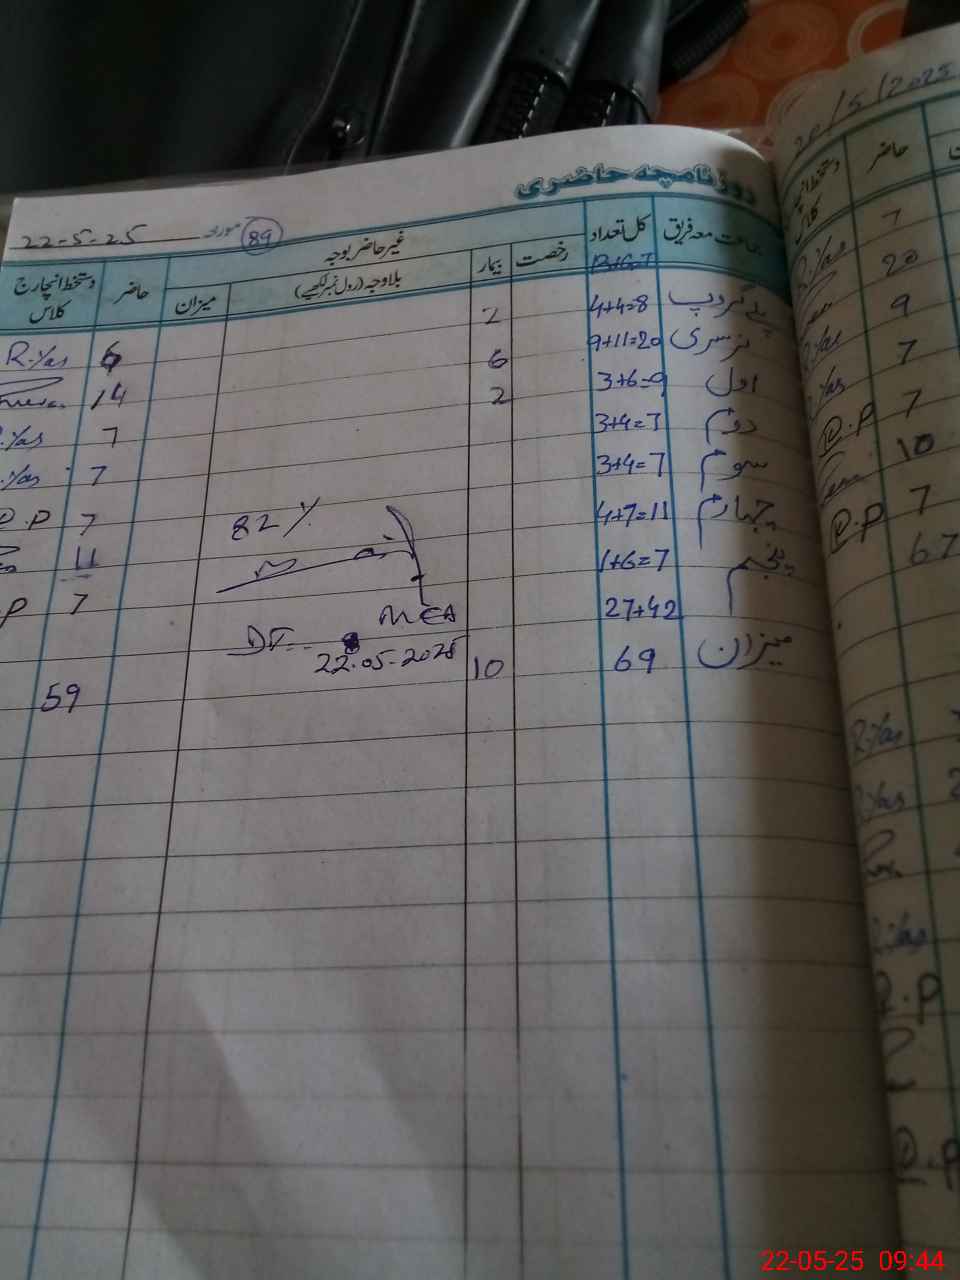 روزنامچہ حاضری
مورخہ 22-5-25
89
جماعت معہ فریق کل تعداد غیر حاضر بوجہ حاضر دستخط انچارج کلاس
رخصت بیمار بلاوجہ (رول نمبر لکھیے) میزان
پلے گروپ 4+4=8 2 6 R.Yas
نرسری 9+11=20 6 14
اول 3+6=9 2 7 R.Yas
دوم 3+4=7 7 R.Yas
سوم 3+4=7 7 R.P
چہارم 4+7=11 11
پنجم 1+6=7 7 R.P
27+42
میزان 69 10 59
82%
MEA
DT:- 22.05-2025
20/5/2025
دستخط انچارج کلاس حاضر
R.Yas 7
20
R.Yas 9
R.Yas 7
R.P 7
10
R.P 7
67
R.Yas
R.Yas
R.Yas
R.P
R.P
22-05-25 09:44